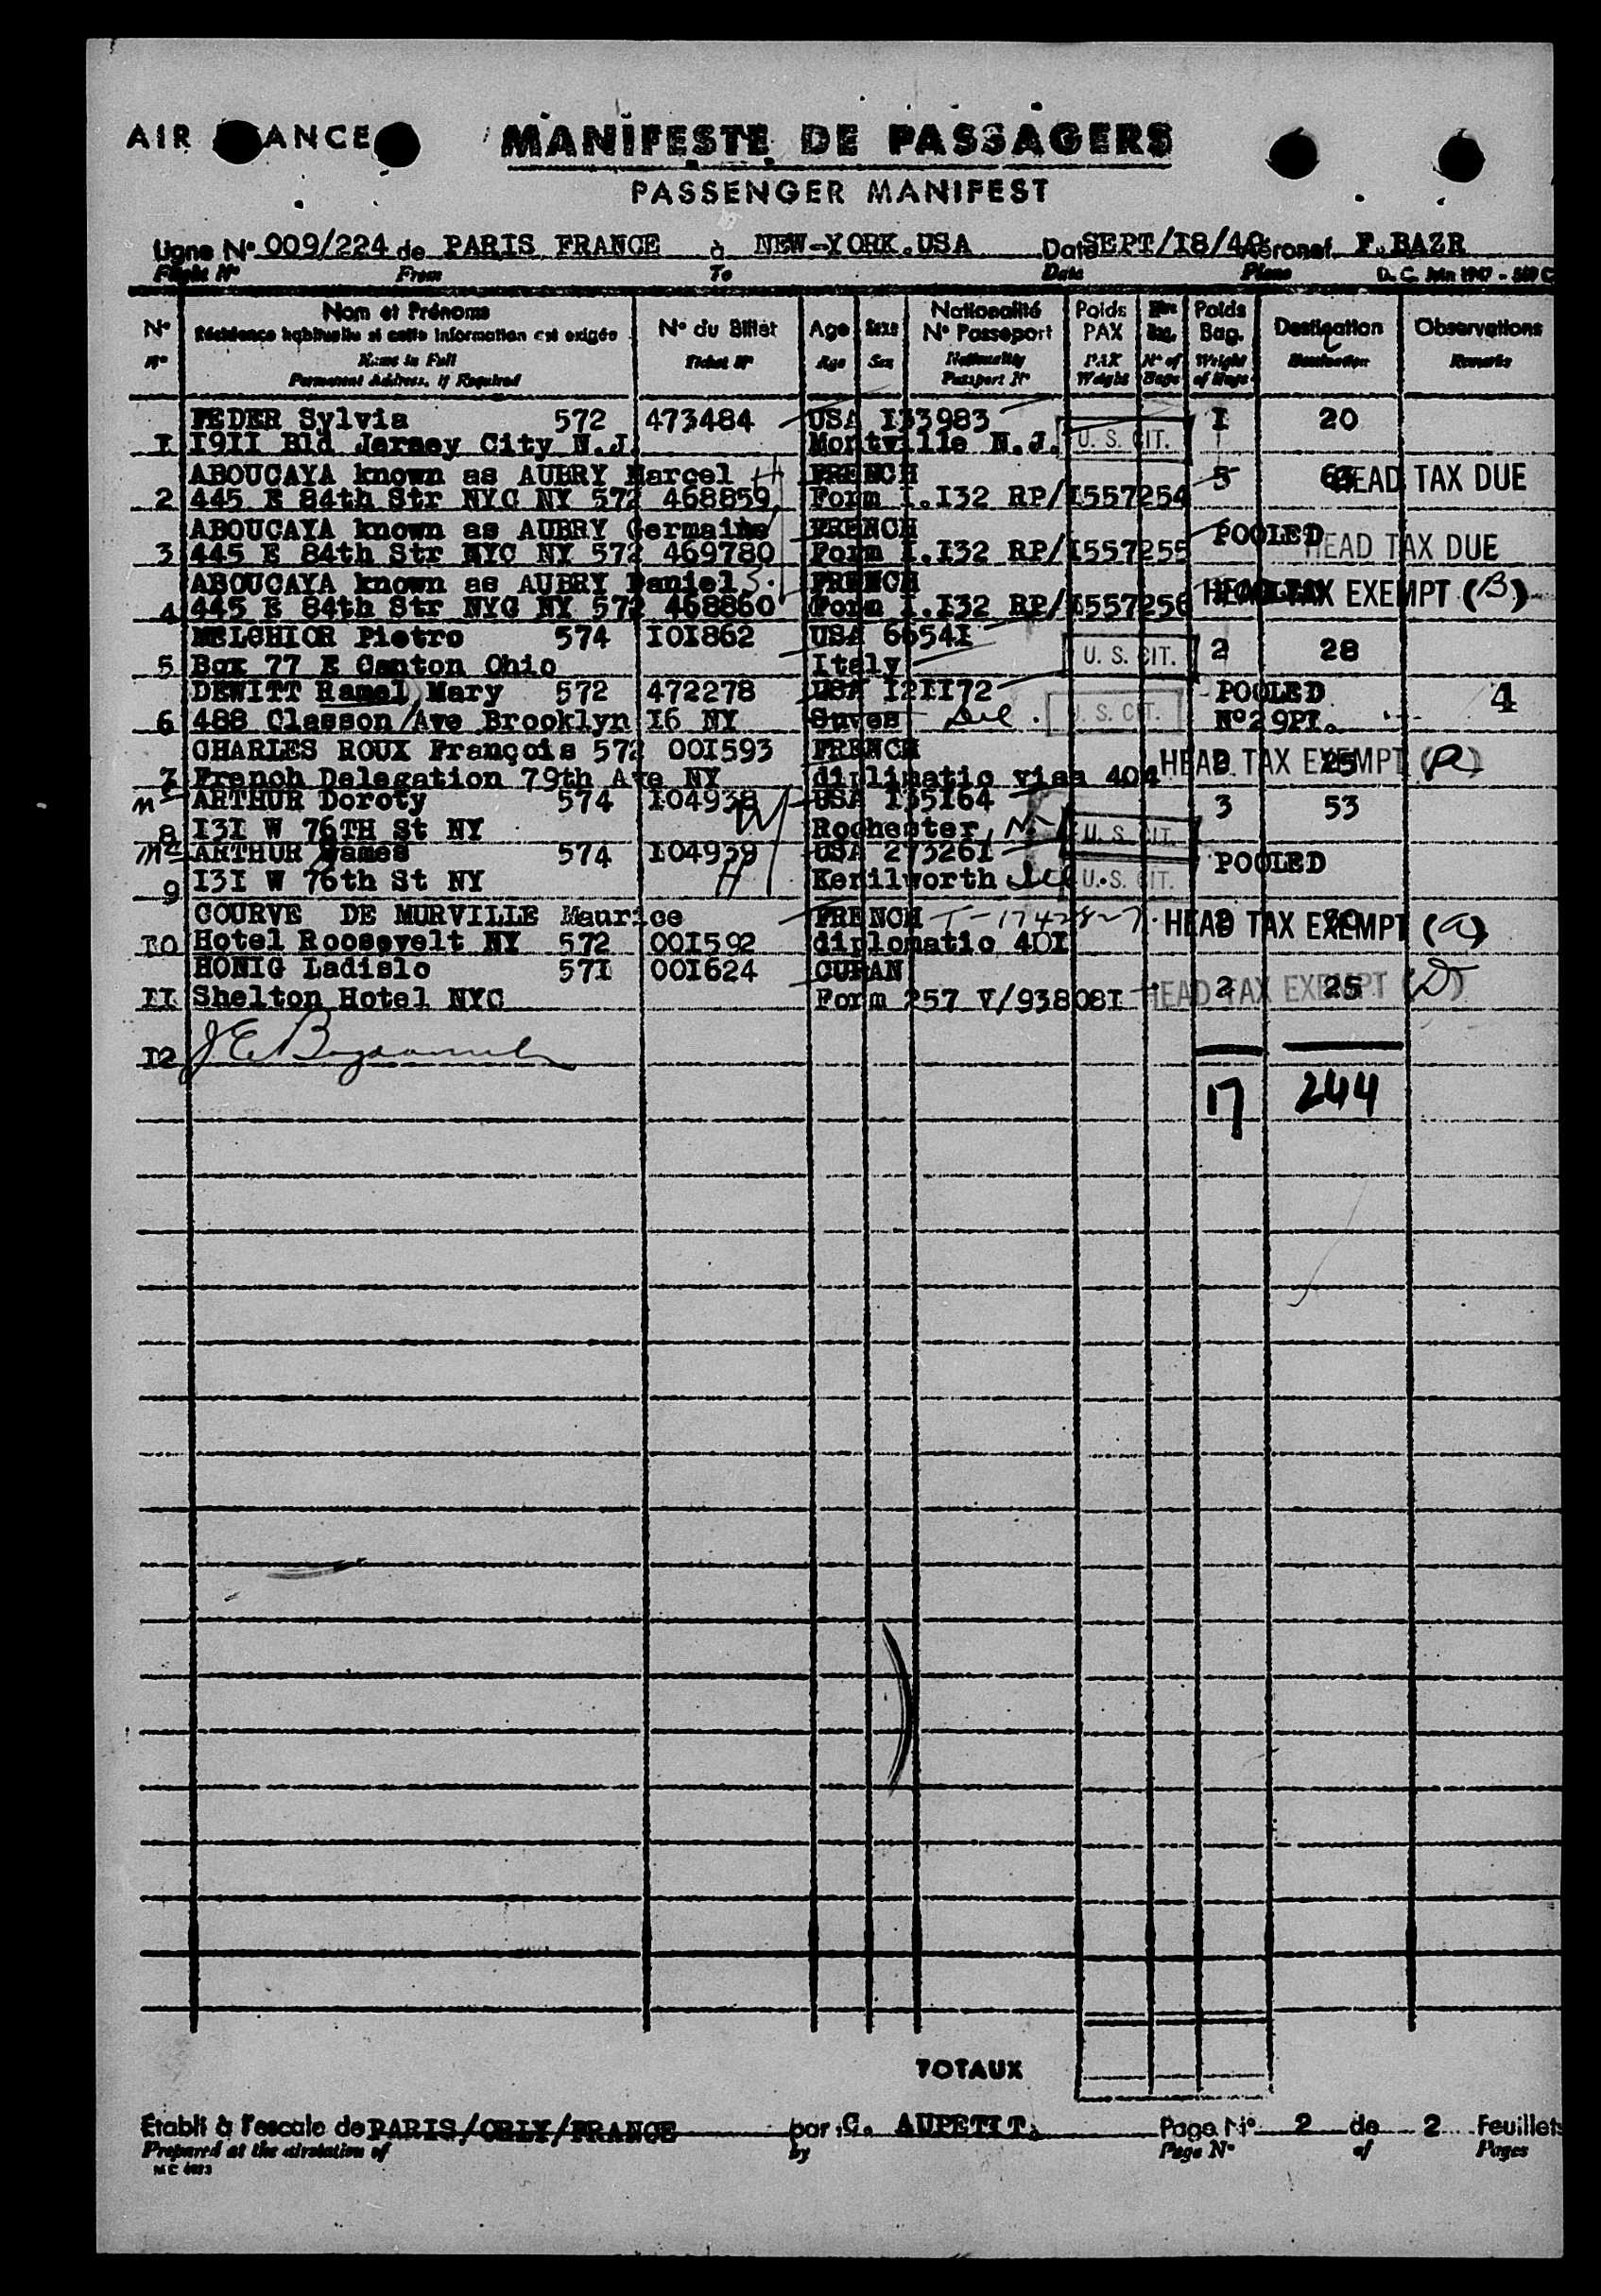 AIR ANCE
MANIFESTE DE PASSAGERS
PASSENGER MANIFEST
Ligne N° 009/224 de PARIS FRANCE à NEW-YORK.USA Date SEPT/I8/4 Aéronef F.BAZR
Flight N° From To Date Plane D. C. Juin 1947
N° Nom et Prénoms N° du Billet Age Sexe Nationalité Poids Poids Destination Observations
Résidence habituelle si cette information est exigée N° Passeport PAX Bag. Bag.
N° Name in Full Ticket N° Age Sex Nationality PAX N° of Weight Destination Remarks
Permanent Address, if Required Passport N° Weight Bags of Bags
FEDER Sylvia 572 473484 USA I33983 I 20
I I9II Bld Jersey City N.J. Montville N.J. U. S. CIT.
ABOUCAYA known as AUBRY Marcel H FRENCH 5 HEAD TAX DUE
2 445 E 84th Str NYC NY 572 468859 Form I.I32 RP/I557254
ABOUCAYA known as AUBRY Germaine FRENCH POOLED HEAD TAX DUE
3 445 E 84th Str NYC NY 572 469780 Form I.I32 RP/I557255
ABOUCAYA known as AUBRY Daniel 3. FRENCH HEAD TAX EXEMPT (B)
4 445 E 84th Str NYC NY 572 468860 Form I.I32 RP/I557256
MELCHIOR Pietro 574 IOI862 USA 66541 2 28
5 Box 77 E Canton Ohio Italy U. S. CIT.
DEWITT Ramel Mary 572 472278 USA I2II72 POOLED 4
6 488 Classon Ave Brooklyn I6 NY Suves U. S. CIT. N°2 9PI.
CHARLES ROUX François 572 00I593 FRENCH HEAD TAX EXEMPT (a) 2 25
7 French Delegation 79th Ave NY diplimatic visa 404
ARTHUR Doroty 574 I04938 USA I35I64 3 53
8 I3I W 76TH St NY Rochester N- U. S. CIT.
ARTHUR James 574 I04939 USA 27326I POOLED
9 I3I W 76th St NY H Kenilworth U. S. CIT.
COURVE DE MURVILLE Maurice FRENCH HEAD TAX EXEMPT (a)
IO Hotel Roosevelt NY 572 00I592 diplomatic 40I
HONIG Ladislo 57I 00I624 CUBAN HEAD TAX EXEMPT (D) 2 25
II Shelton Hotel NYC Form 257 V/93808I
I2
17 244
TOTAUX
Etabli à l'escale de PARIS/ORLY/FRANCE par C. AUPETIT. Page N° 2 de 2 Feuillets
Prepared at the airstation of by Page N° of Pages